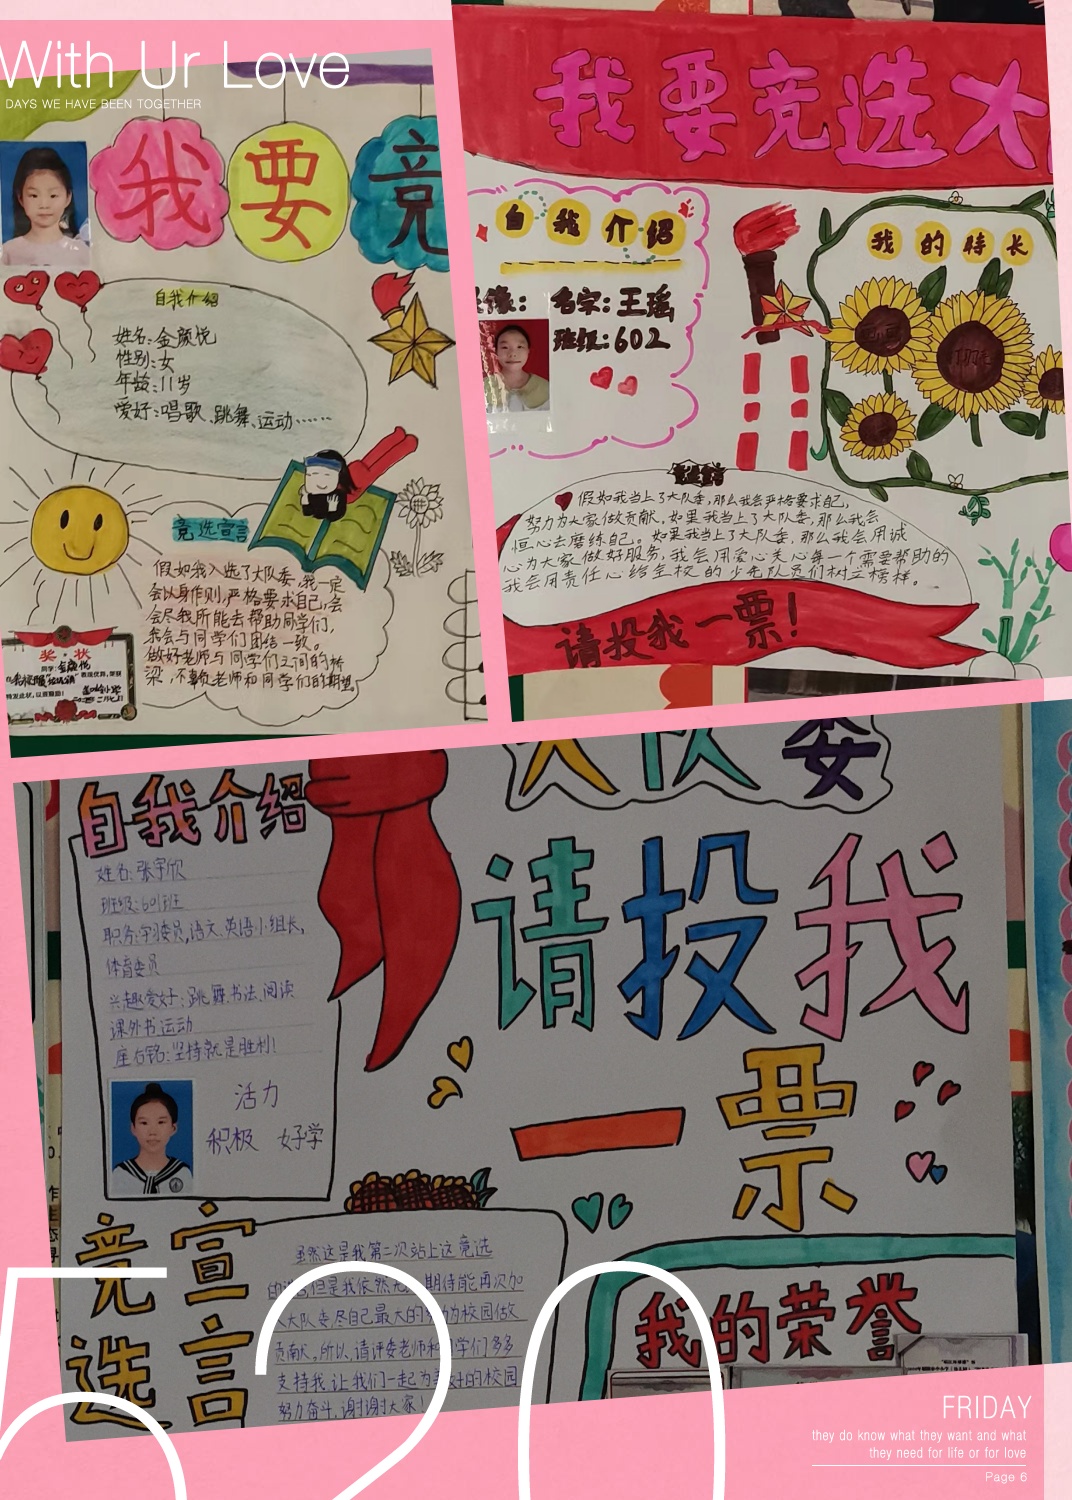 With Ur Love
DAYS WE HAVE BEEN TOGETHER
我要竞
自我介绍
姓名:金颜悦
性别:女
年龄:11岁
爱好:唱歌、跳舞、运动……
竞选宣言
假如我入选了大队委,我一定
会以身作则,严格要求自己,会
会尽我所能去帮助同学们,
我会与同学们团结一致。
做好老师与同学们之间的桥
梁,不辜负老师和同学们的期望。
奖·状
我要竞选大
自我介绍
名字:王瑶
班级:602
我的特长
竞选宣言
假如我当上了大队委,那么我会严格要求自己,
努力为大家做贡献。如果我当上了大队委,那么我会
恒心去磨练自己。如果我当上了大队委,那么我会用诚
心为大家做好服务,我会用爱心关心每一个需要帮助的
我会用责任心给全校的少先队员们树立榜样。
请投我一票!
大队委
自我介绍
姓名:张宇欣
班级:601班
职务:学习委员,语文、英语小组长,
体育委员
兴趣爱好:跳舞、书法、阅读
课外书、运动
座右铭:坚持就是胜利!
活力
积极 好学
请投我
一票
竞选宣言
虽然这是我第二次站上这竞选
的 ,但是我依然 期待能再次加
入大队委尽自己最大的 为校园做
贡献。所以,请评委老师和同学们多多
支持我,让我们一起为美好的校园
努力奋斗,谢谢大家!
我的荣誉
520
FRIDAY
they do know what they want and what
they need for life or for love
Page 6